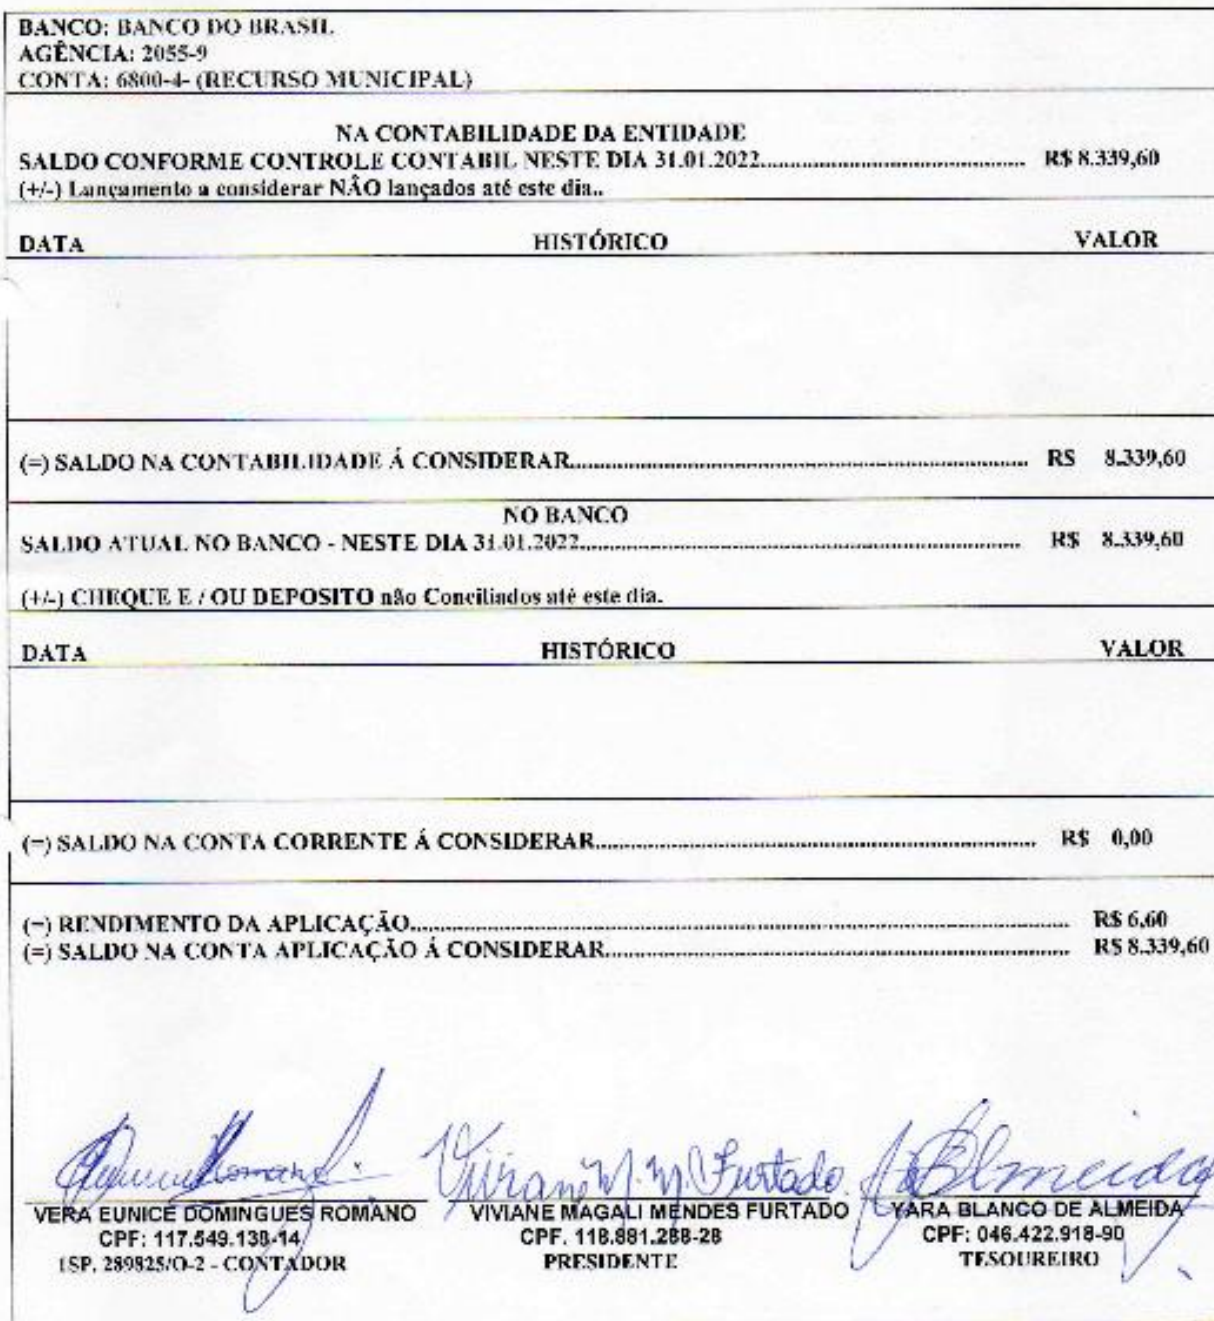 BANCO: BANCO DO BRASIL
AGÊNCIA: 2055-9
CONTA: 6800-4- (RECURSO MUNICIPAL)
NA CONTABILIDADE DA ENTIDADE
SALDO CONFORME CONTROLE CONTABIL NESTE DIA 31.01.2022.......... R$ 8.339,60
(+/-) Lançamento a considerar NÂO lançados até este dia..
DATA HISTÓRICO VALOR
(=) SALDO NA CONTABILIDADE Á CONSIDERAR.......... R$ 8.339,60
NO BANCO
SALDO ATUAL NO BANCO - NESTE DIA 31.01.2022.......... R$ 8.339,60
(+/-) CHEQUE E / OU DEPOSITO não Conciliados até este dia.
DATA HISTÓRICO VALOR
(=) SALDO NA CONTA CORRENTE Á CONSIDERAR.......... R$ 0,00
(=) RENDIMENTO DA APLICAÇÃO.......... R$ 6,60
(=) SALDO NA CONTA APLICAÇÃO Á CONSIDERAR.......... R$ 8.339,60
Viviane M. M. Furtado. Almeida
VERA EUNICE DOMINGUES ROMANO VIVIANE MAGALI MENDES FURTADO YARA BLANCO DE ALMEIDA
CPF: 117.549.138-14 CPF. 118.881.288-28 CPF: 046.422.918-90
1SP. 289825/O-2 - CONTADOR PRESIDENTE TESOUREIRO